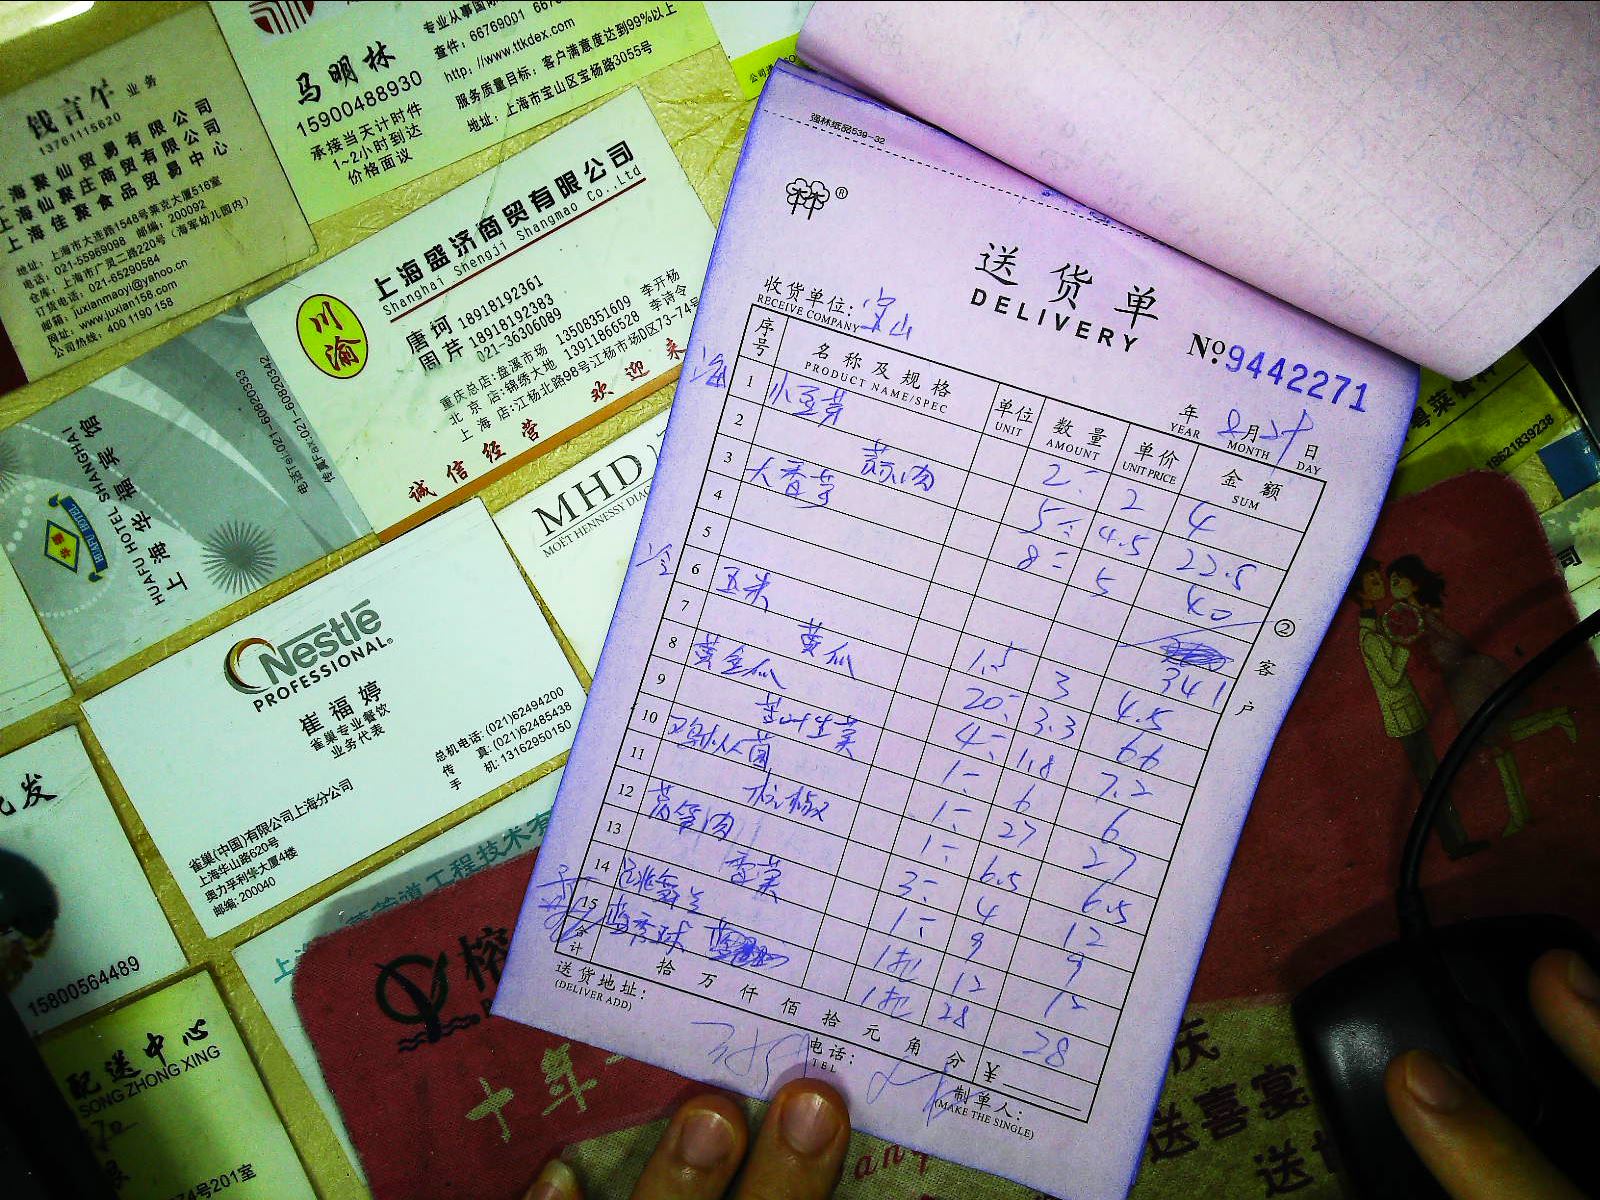 钱言午 业务
13761115620
上海聚仙贸易有限公司
上海仙聚庄商贸有限公司
上海佳聚食品贸易中心
地址：上海市大连路1548号莱克大厦516室
电话：021-55969098 邮编：200092
仓库：上海市广灵二路220号（海军幼儿园内）
订货电话：021-65290584
邮箱：juxianmaoyi@yahoo.cn
网址：www.juxian158.com
公司热线：400 1190 158
马明林
15900488930
承接当天计时件
1~2小时到达
价格面议
专业从事国际
查件：66769001
http：//www.ttkdex.com
服务质量目标：客户满意度达到99%以上
地址：上海市宝山区宝杨路3055号
川渝
上海盛济商贸有限公司
Shanghai Shengji Shangmao Co.,Ltd
唐珂 18918192361
周芹 18918192383
021-36306089
重庆总店:盘溪市场 13508351609 李开杨
北京店:锦绣大地 13911866528 李诗令
上海店:江杨北路98号江杨市场D区73-74号
诚信经营 欢迎来
上海华福宾馆
HUAFU HOTEL SHANGHAI
HUAFU HOTEL
电话Tel:021-60820333
传真Fax:021-60820342
MHD
MOËT HENNESSY DIAG
Nestlé
PROFESSIONAL®
崔福婷
雀巢专业餐饮
业务代表
总机电话: (021)62494200
传 真: (021)62485438
手 机: 13162950150
雀巢(中国)有限公司上海分公司
上海华山路620号
奥力孚利华大厦4楼
邮编: 200040
15800564489
配送中心
SONG ZHONG XING
74号201室
道工程技术有
十年
送喜宴
18621839238
强林纸品539-32
林®
送货单
DELIVERY
№9442271
收货单位：宝山
RECEIVE COMPANY
年 8月29日
YEAR MONTH DAY
序号 名称及规格 单位 数量 单价 金额
PRODUCT NAME/SPEC UNIT AMOUNT UNIT PRICE SUM
海
1 小豆芽 2 2 4
2 蒜肉 5 4.5 22.5
3 大香芋 8 5 40
4
5 341
冷
6 玉米 1.5 3 4.5
7 黄瓜 20 3.3 66
8 黄金瓜 4 1.8 7.2
9 苦叶生菜 1 6 6
10 鸡枞菌 1 27 27
11 杭椒 1 6.5 6.5
12 莴笋肉 3 4 12
13 香菜 1 9 9
14 跳舞兰 1扎 12 12
15 1扎 28 28
合计 拾 万 仟 佰 拾 元 角 分 ¥
送货地址：
(DELIVER ADD)
电话：
TEL
制单人：
(MAKE THE SINGLE)
② 客户